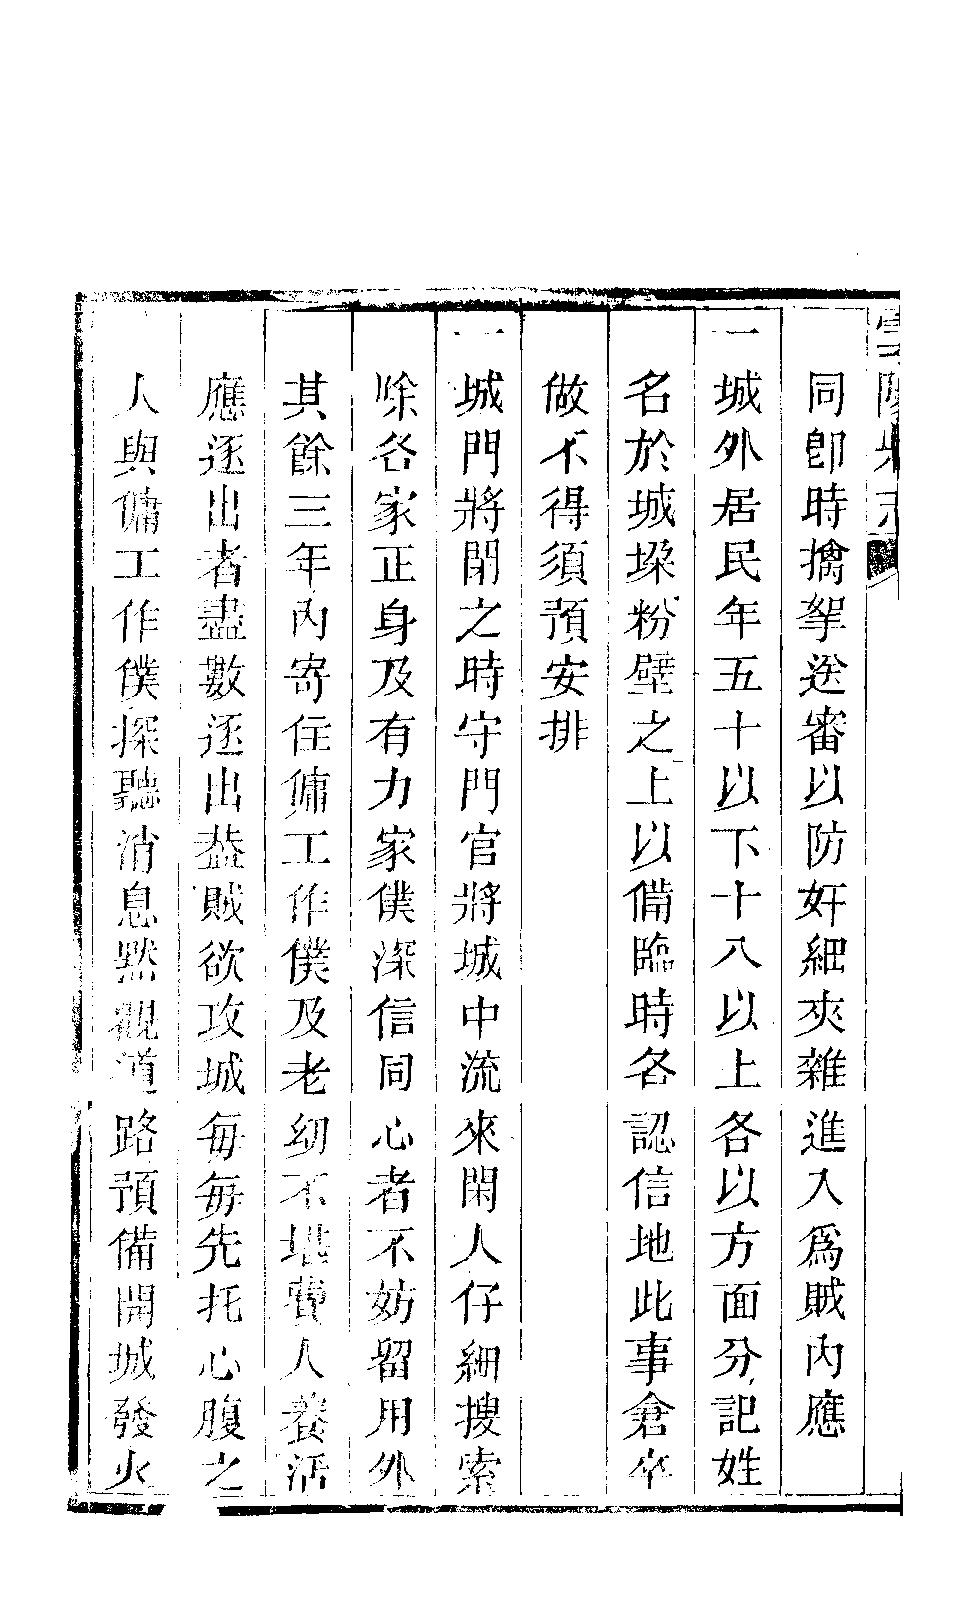 同卽時擒拏送審以防奸細夾雜進入爲賊內應
一城外居民年五十以下十八以上各以方面分記姓
名於城垜粉壁之上以備臨時各認信地此事倉卒
做不得須預安排
一城門將閉之時守門官將城中流來閑人仔細搜索
除各家正身及有力家僕深信同心者不妨留用外
其餘三年內寄住傭工作僕及老幼不堪費人養活
應逐出者盡數逐出葢賊欲攻城每每先托心腹之
人與傭工作僕探聽消息默觀道路預備開城發火